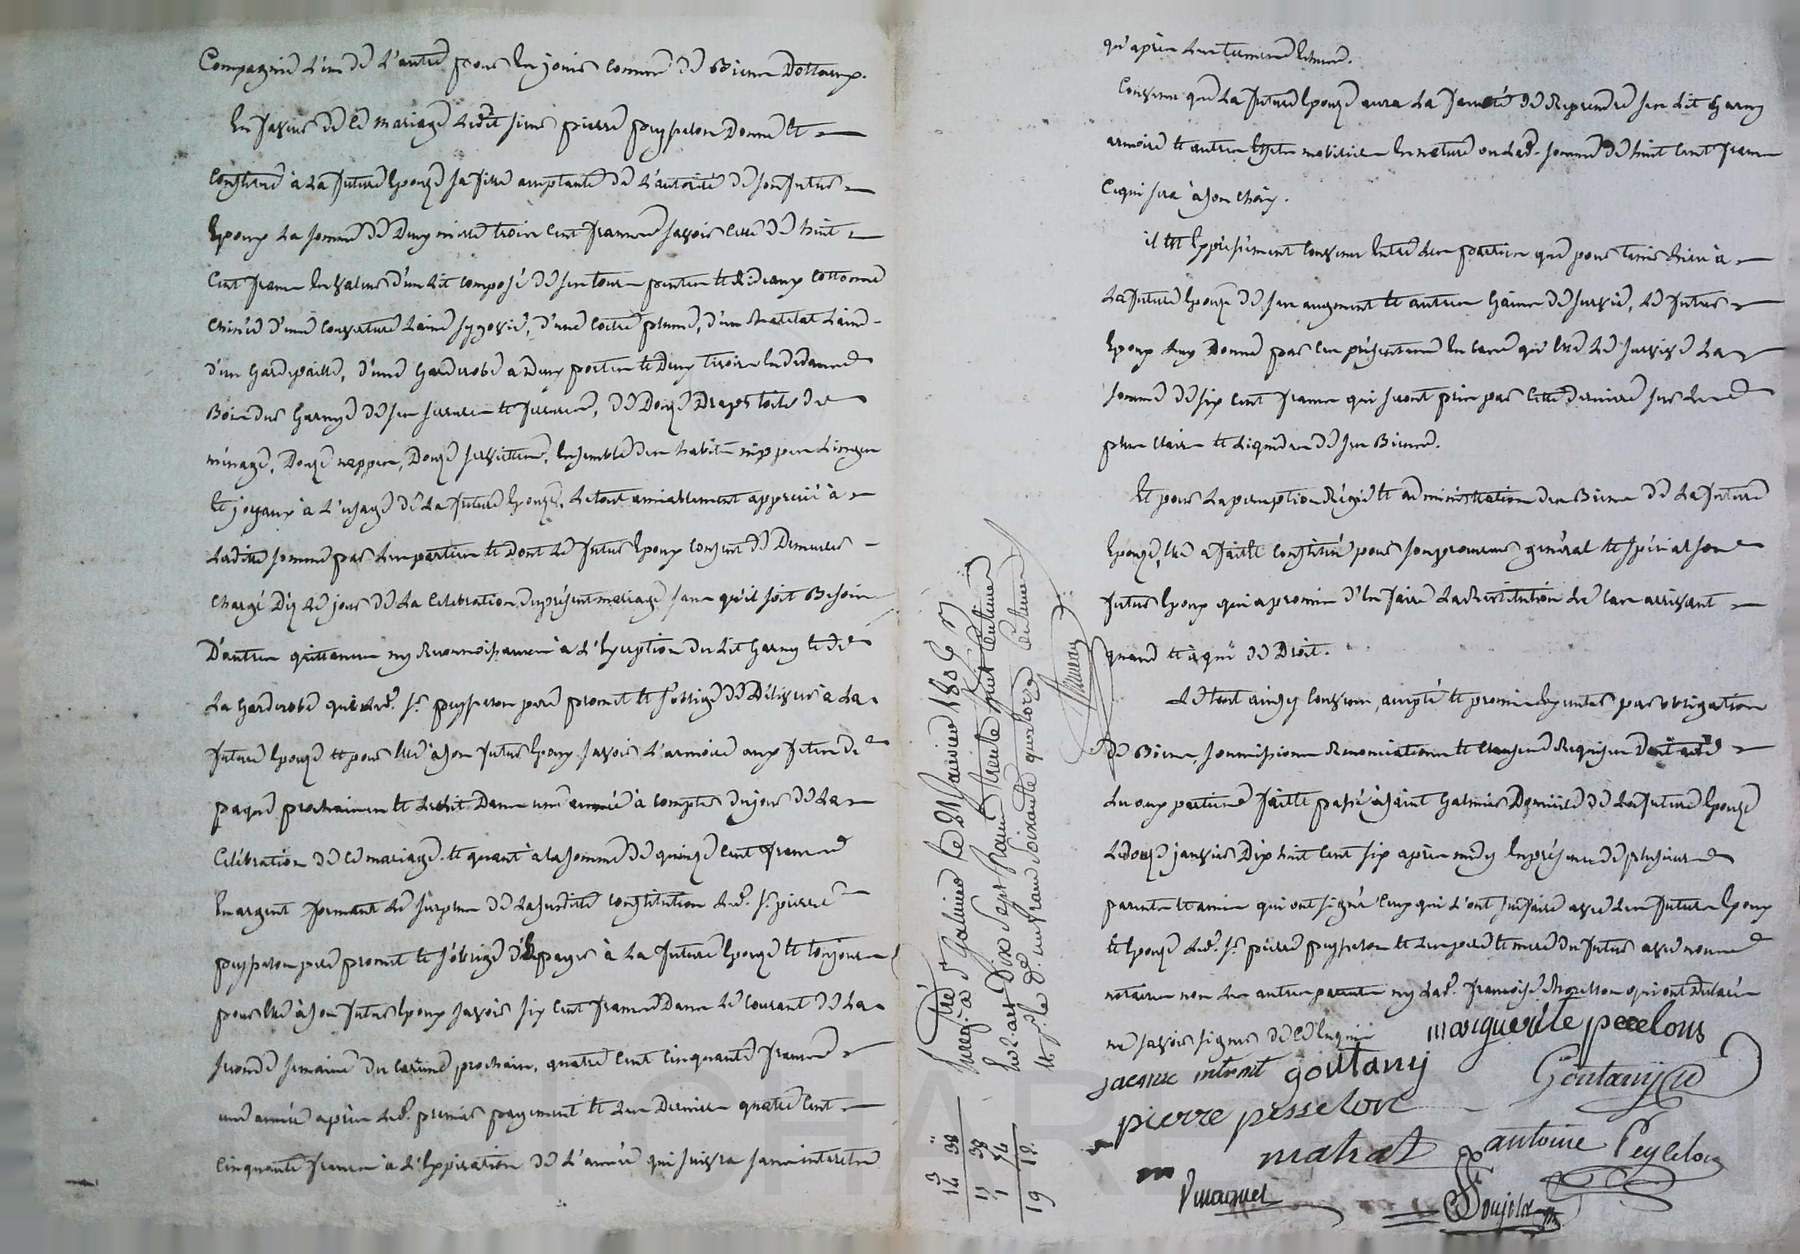 Compagnie l'un de l'autre pour en jouir comme de Biens Dottaux.
En faveur de ce mariage ledit sieur pierre peysselon Donne et
Constitue à la future Epouze sa fille acceptante de l'autorité de son futur
Epoux la somme de Deux mille trois cent francs savoir celle de huit
Cent francs en valeur d'un lit composé de son tour pentes et Rideaux cottonne
d'une couverture Laine, d'une coitre plume, d'un matelat Laine
d'un Gardepaille, d'une Garderobe a Deux portes et Deux tiroirs en dedans
Bois dur Garnye de ses serrures et ferrures, de Douze Draps toile de
ménage, Douze nappes, Douze serviettes, Ensemble des habits nippes Linges
et joyaux à l'usage de la future Epouze. Le tout amiablement apprecié à
Ladite somme par les parties et Dont le futur Epoux consent de Demeurer
chargé Dez le jour de la Celebration du présent mariage sans qu'il soit Besoin
D'autres quittances ny Reconnoissances à l'Exception du Lit Garny et de
La Garderobe que led. Sr. peysselon pere promet et s'oblige de Délivrer à La
future Epouze et pour Elle à son futur Epoux savoir L'armoire aux fetes de
paques prochaines et Le lit Dans une année à compter du jour de La
Celébration de ce mariage. et quant à la somme de quinze cent francs
En argent formant le surplus de la susditte constitution Led. Sr. pierre
peysselon pere promet et s'oblige de payer à La future Epouze et toujours
pour Elle à son futur Epoux savoir six cent francs Dans Le Courant de La
seconde semaine du carême prochain, quatre cent cinquante francs
une année après led. premier payement et Les Derniers quatre cent
cinquante francs à L'Expiration de L'année qui suivra sans interêts
qu'après les termes Echus.
Convenu que La future Epouze aura La faculté de Reprendre son Lit Garny
armoire et autres Effets mobiliers En nature ou Lad. somme de huit Cent francs
Ce qui sera à son choix.
il Est Expressément Convenu Entre les parties que pour tenir Lieu à
La future Epouze de son augment et autres Gains de survie, Le futur
Epoux Luy Donne par ces présentes En cas qu'Elle Le survive La
somme de six cent francs qui seront pris par cette derniere sur Les
plus clairs et Liquides de ses Biens.
Et pour La perception Régie et administration des Biens de La future
Epouze, Elle a fait et constitué pour son procureur général et spécial son
futur Epoux qui a promis d'En faire La Restitution Le Cas arrivant
quand et à qui de Droit.
Le tout ainsy convenu, accepté et promis Exécuter par obligation
de Biens, soumissions Renonciations et Clauses Requises Dont acte
Lu aux parties fait et passé à Saint Galmier Domicile de La future Epouze
Le douze janvier Dix huit Cent six après midy En présence de plusieurs
parents et amis qui ont signé Ceux qui L'ont su faire avec Les futurs Epoux
et Epouze Led. Sr. pierre peysselon et Les pere et mere du futur avec nous
notaires non Les autres parents ny Lad. françoise qui ont déclaré
ne savoir signer de ce Enquis
marguerite pecelous
jacque goutany
Goutany
pierre pesselon
mahat
antoine Peyselon
Soujolet
Enreg. à St Galmier le 21 Janvier 1806
Dix Sept francs trente huit Centimes
Et p. le Dme un franc Soixante quatorze Centimes